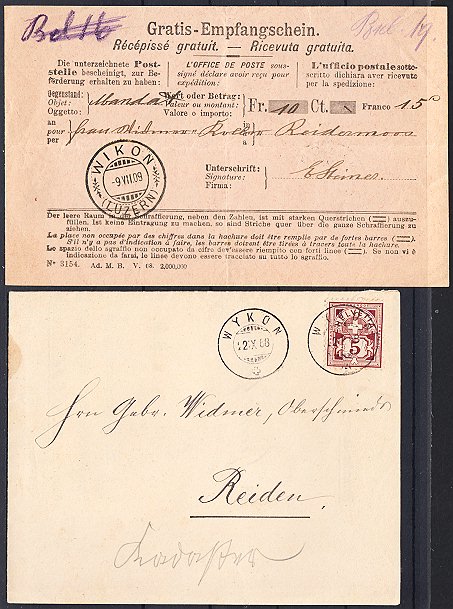 Gratis-Empfangschein.
Récépissé gratuit. — Ricevuta gratuita.
Die unterzeichnete Poststelle bescheinigt, zur Beförderung erhalten zu haben:
L'OFFICE DE POSTE soussigné déclare avoir reçu pour expédition:
L'ufficio postale sottoscritto dichiara aver ricevuto per la spedizione:
Gegenstand: Wert oder Betrag:
Objet: Mandat Valeur ou montant: Fr. 10 Ct. Franco 15 c
Oggetto: Valore o importo:
an
pour frau Widmer-Koller in Reidermoos
per à
a
WIKON
-9.VII.09
(LUZERN)
Unterschrift:
Signature: E Steiner.
Firma:
Der leere Raum in der Schraffierung, neben den Zahlen, ist mit starken Querstrichen ( ) auszu-
füllen. Ist keine Eintragung zu machen, so sind Striche quer über die ganze Schraffierung zu
ziehen.
La place non occupée par des chiffres dans la hachure doit être remplie par de fortes barres ( )
S'il n'y a pas d'indication à faire, les barres doivent être tirées à travers toute la hachure.
Lo spazio dello sgraffio non occupato da cifre dev'essere riempito con forti linee ( ). Se non vi è
indicazione da farsi, le linee devono essere tracciate su tutto lo sgraffio.
Nº 3154. Ad. M. B. V. 08. 2,000,000
WYKON
12 X 88
HELVETIA
5
Hrn Gebr. Widmer, Oberschmieds
Reiden.
Kadaster